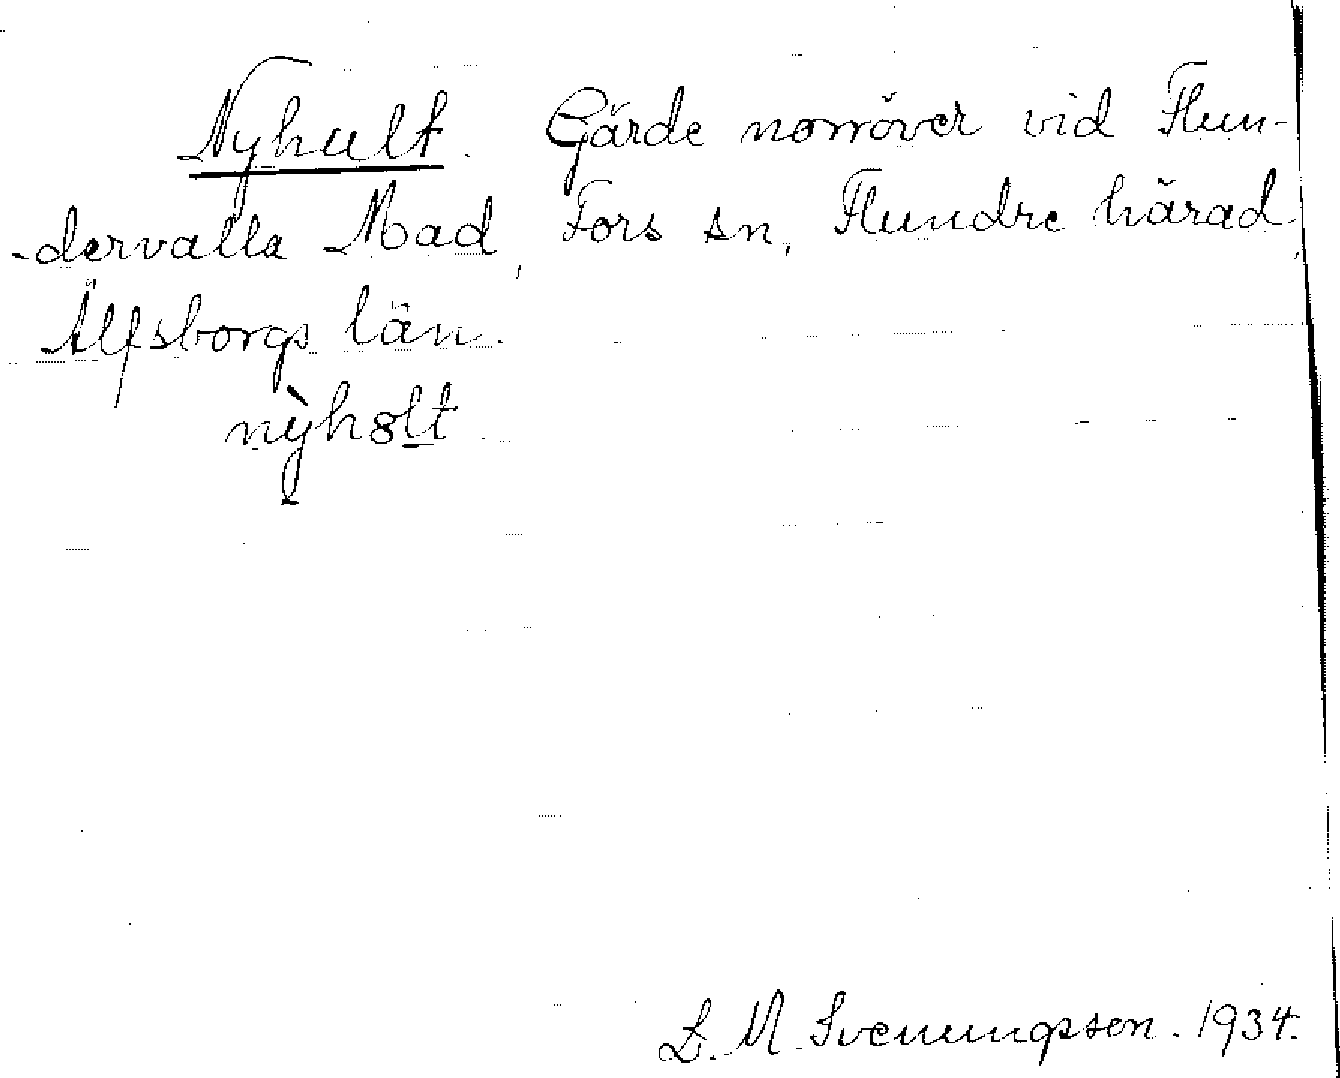 Nyhult. Gärde norröver vid Flun-
-dervalla Mad, Fors sn, Flundre härad,
Älfsborgs län.
nỳhȣlt
D. M. Svenungsson. 1934.